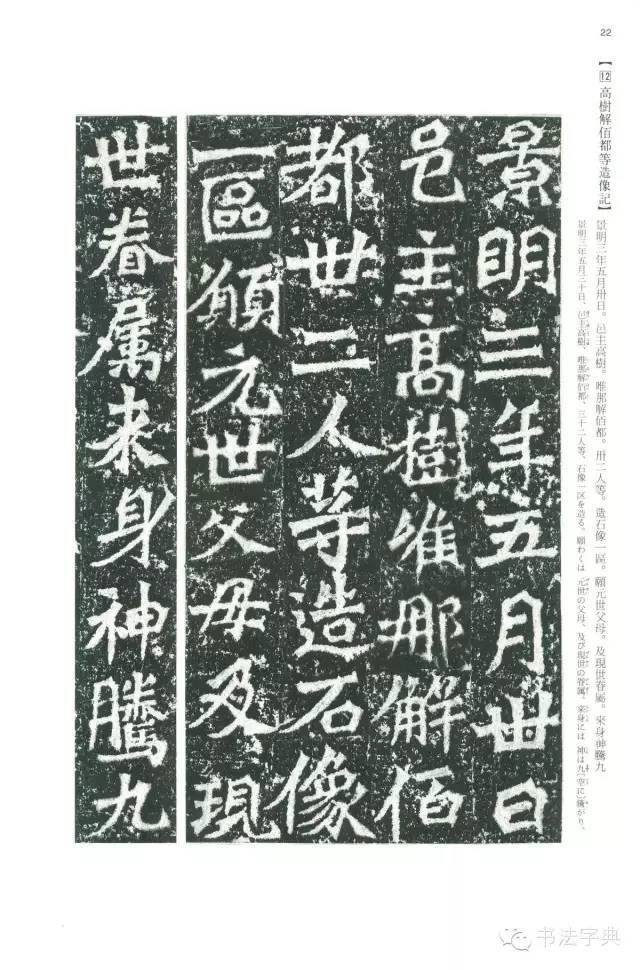 22
【12 高樹解佰都等造像記】
景明三年五月卅日。邑主高樹。唯那解佰都。卅二人等。造石像一區。願元世父母。及現世眷屬。來身神騰九
景明三年五月三十日、邑主高樹、唯那解佰都、三十二人等、石像一区を造る。願わくは 元世の父母、及び現世の眷属。来身には 神は九〔空に〕騰がり、
景明三年五月卅日
邑主高樹唯那解佰
都卅二人等造石像
一區願元世父母及現
世眷属来身神騰九
书法字典